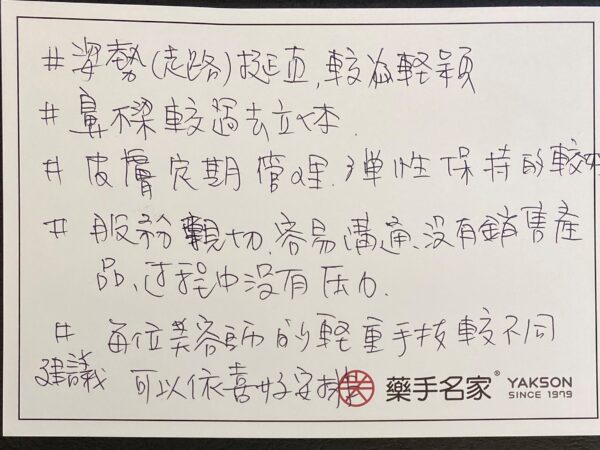 # 姿勢(走路)挺直,較為輕穎
# 鼻樑較過去立体.
# 皮膚定期管理.弹性保持的較好
# 服務親切.容易溝通、没有銷售產
品,过程中没有压力.
# 每位美容師的輕重手技較不同
建議 可以依喜好安排
藥手名家® YAKSON
SINCE 1979